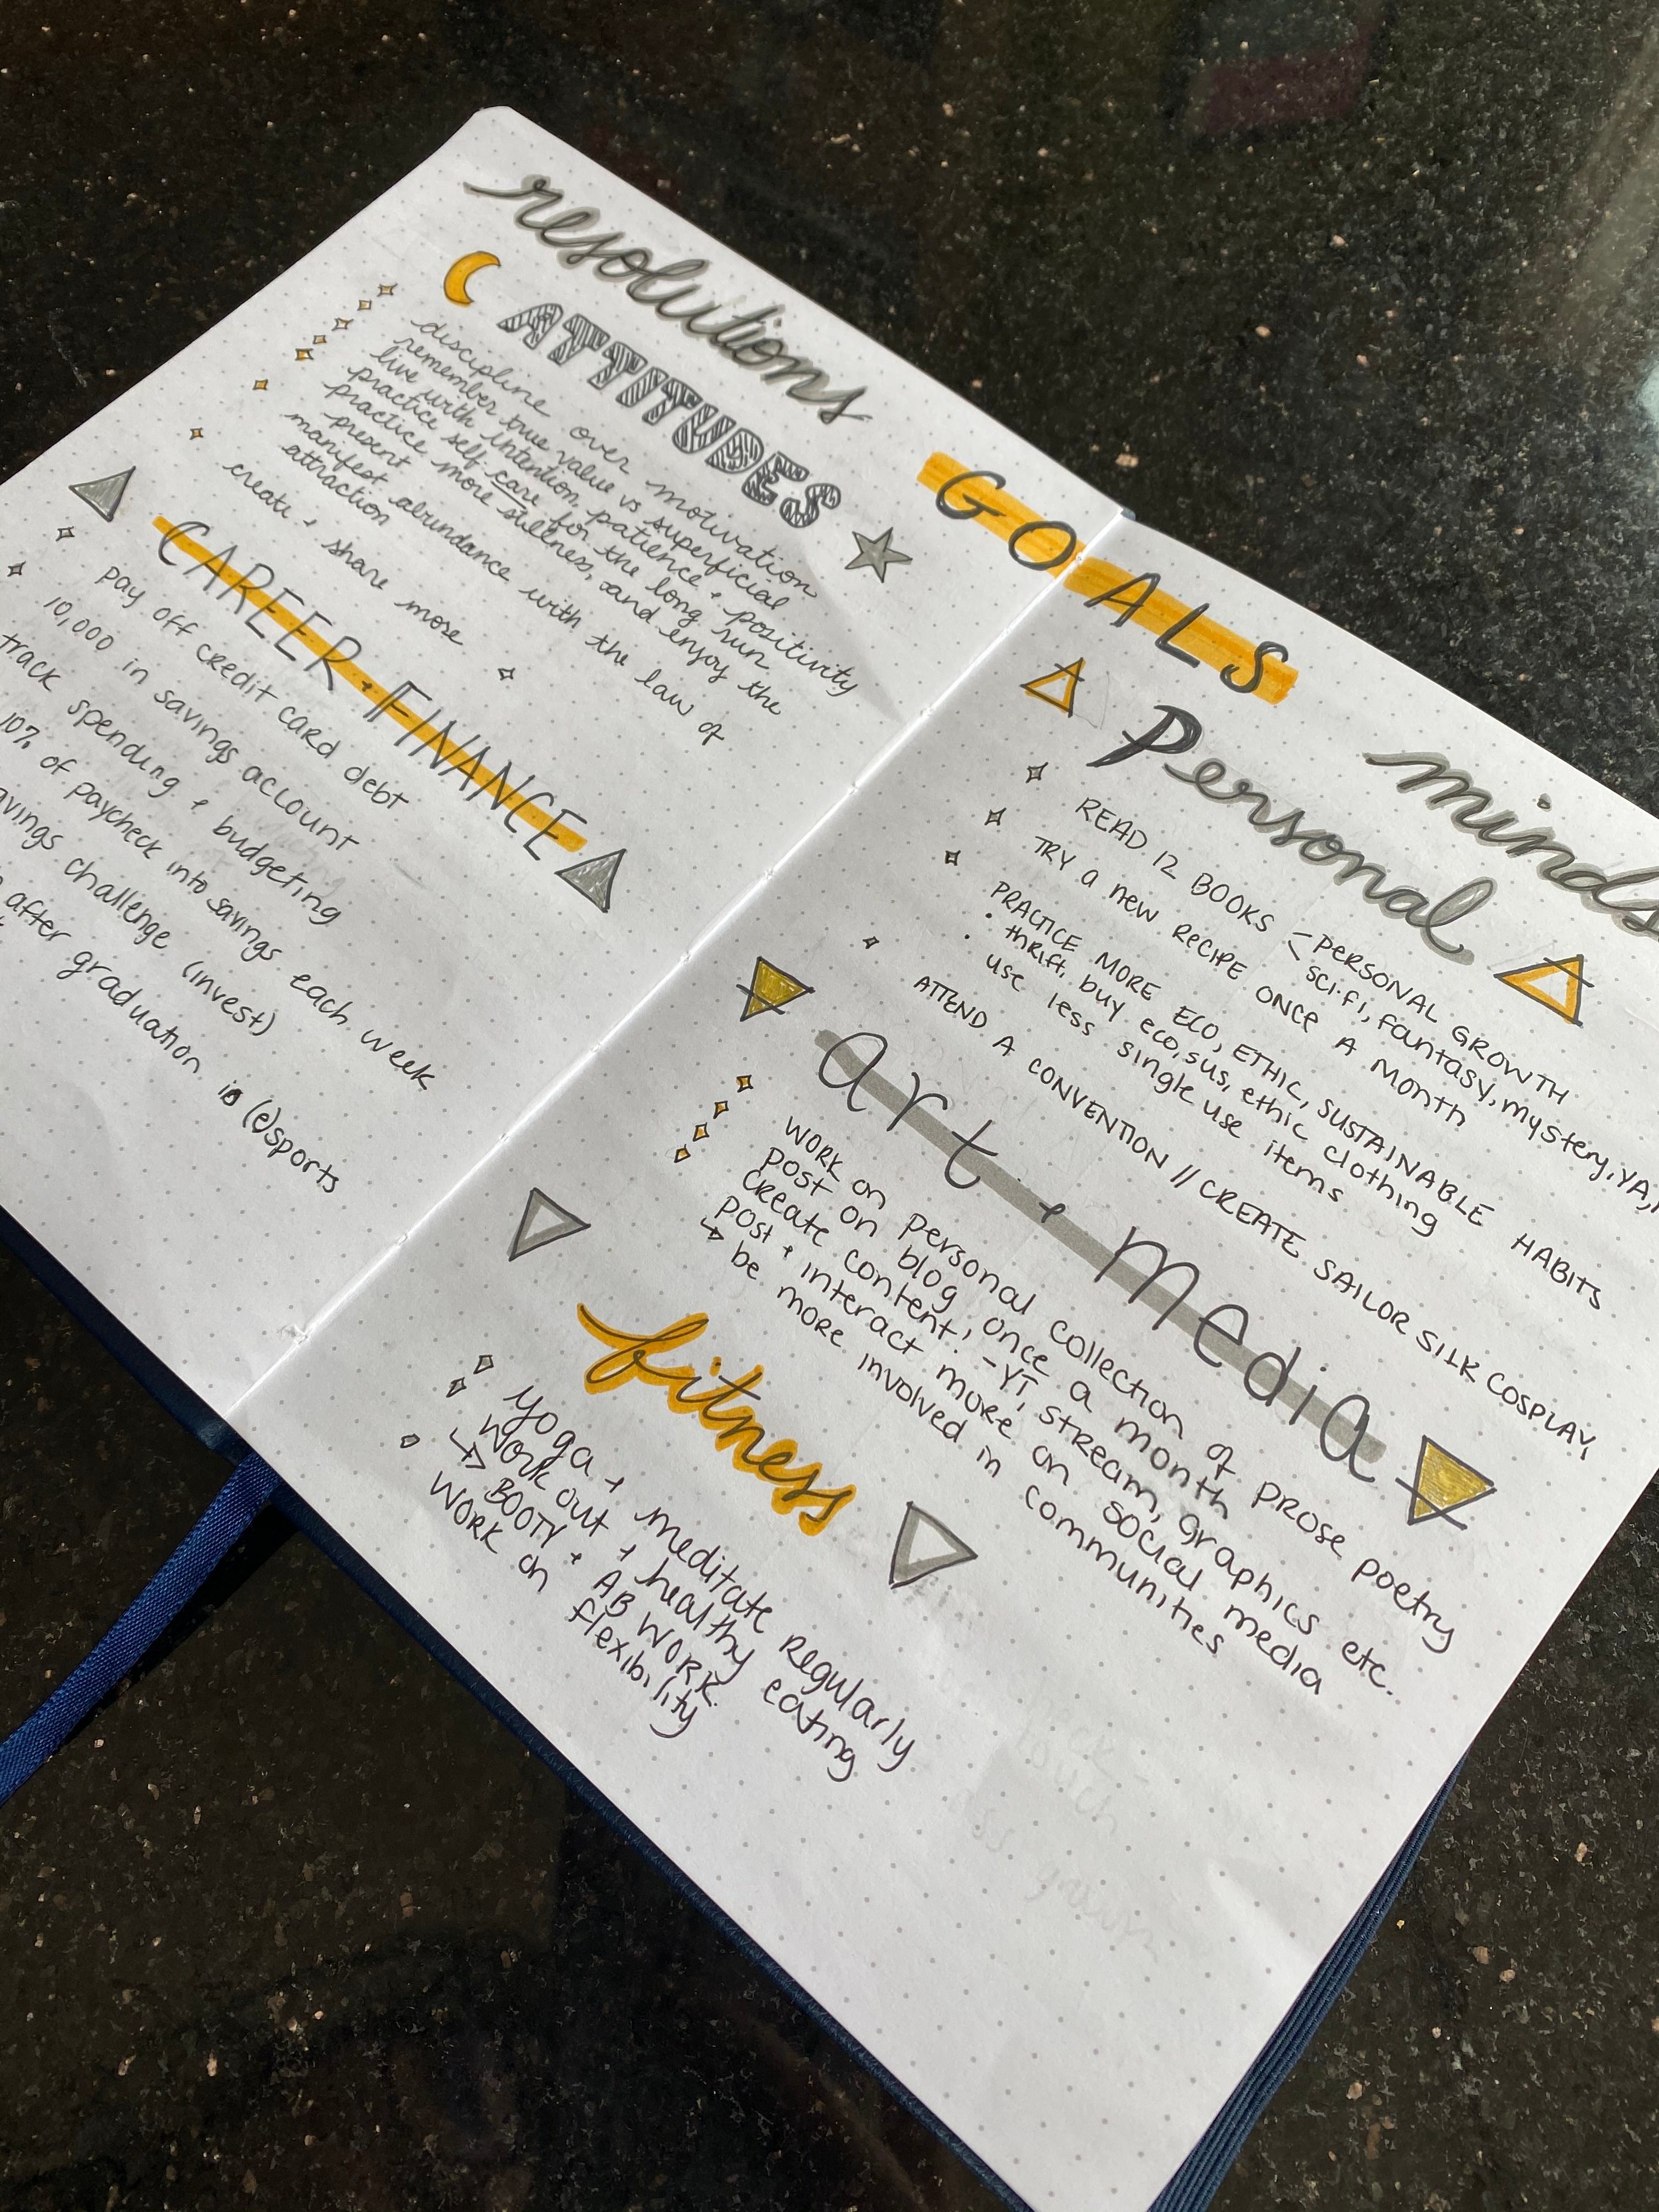 resolutions
GOALS
minds
ATTITUDES
discipline over motivation
remember true value vs superficial
live with intention, patience + positivity
practice self-care for the long run
practice more stillness, and enjoy the
present
manifest abundance with the law of
attraction
create + share more
CAREER + FINANCE
pay off credit card debt
10,000 in savings account
track spending + budgeting
10% of paycheck into savings each week
savings challenge (invest)
after graduation in (e)sports
Personal
READ 12 BOOKS - PERSONAL GROWTH
- sci-fi, fantasy, mystery, YA,
TRY A NEW RECIPE ONCE A MONTH
PRACTICE MORE ECO, ETHIC, SUSTAINABLE HABITS
· thrift, buy eco, sus, ethic clothing
· use less single use items
ATTEND A CONVENTION // CREATE SAILOR SILK COSPLAY
art + media
WORK on personal collection of prose poetry
post on blog once a month
create content! - YT, stream, graphics etc.
post + interact more on social media
↳ be more involved in communities
fitness
yoga + meditate regularly
Work out + healthy eating
↳ BOOTY + AB WORK
WORK on flexibility